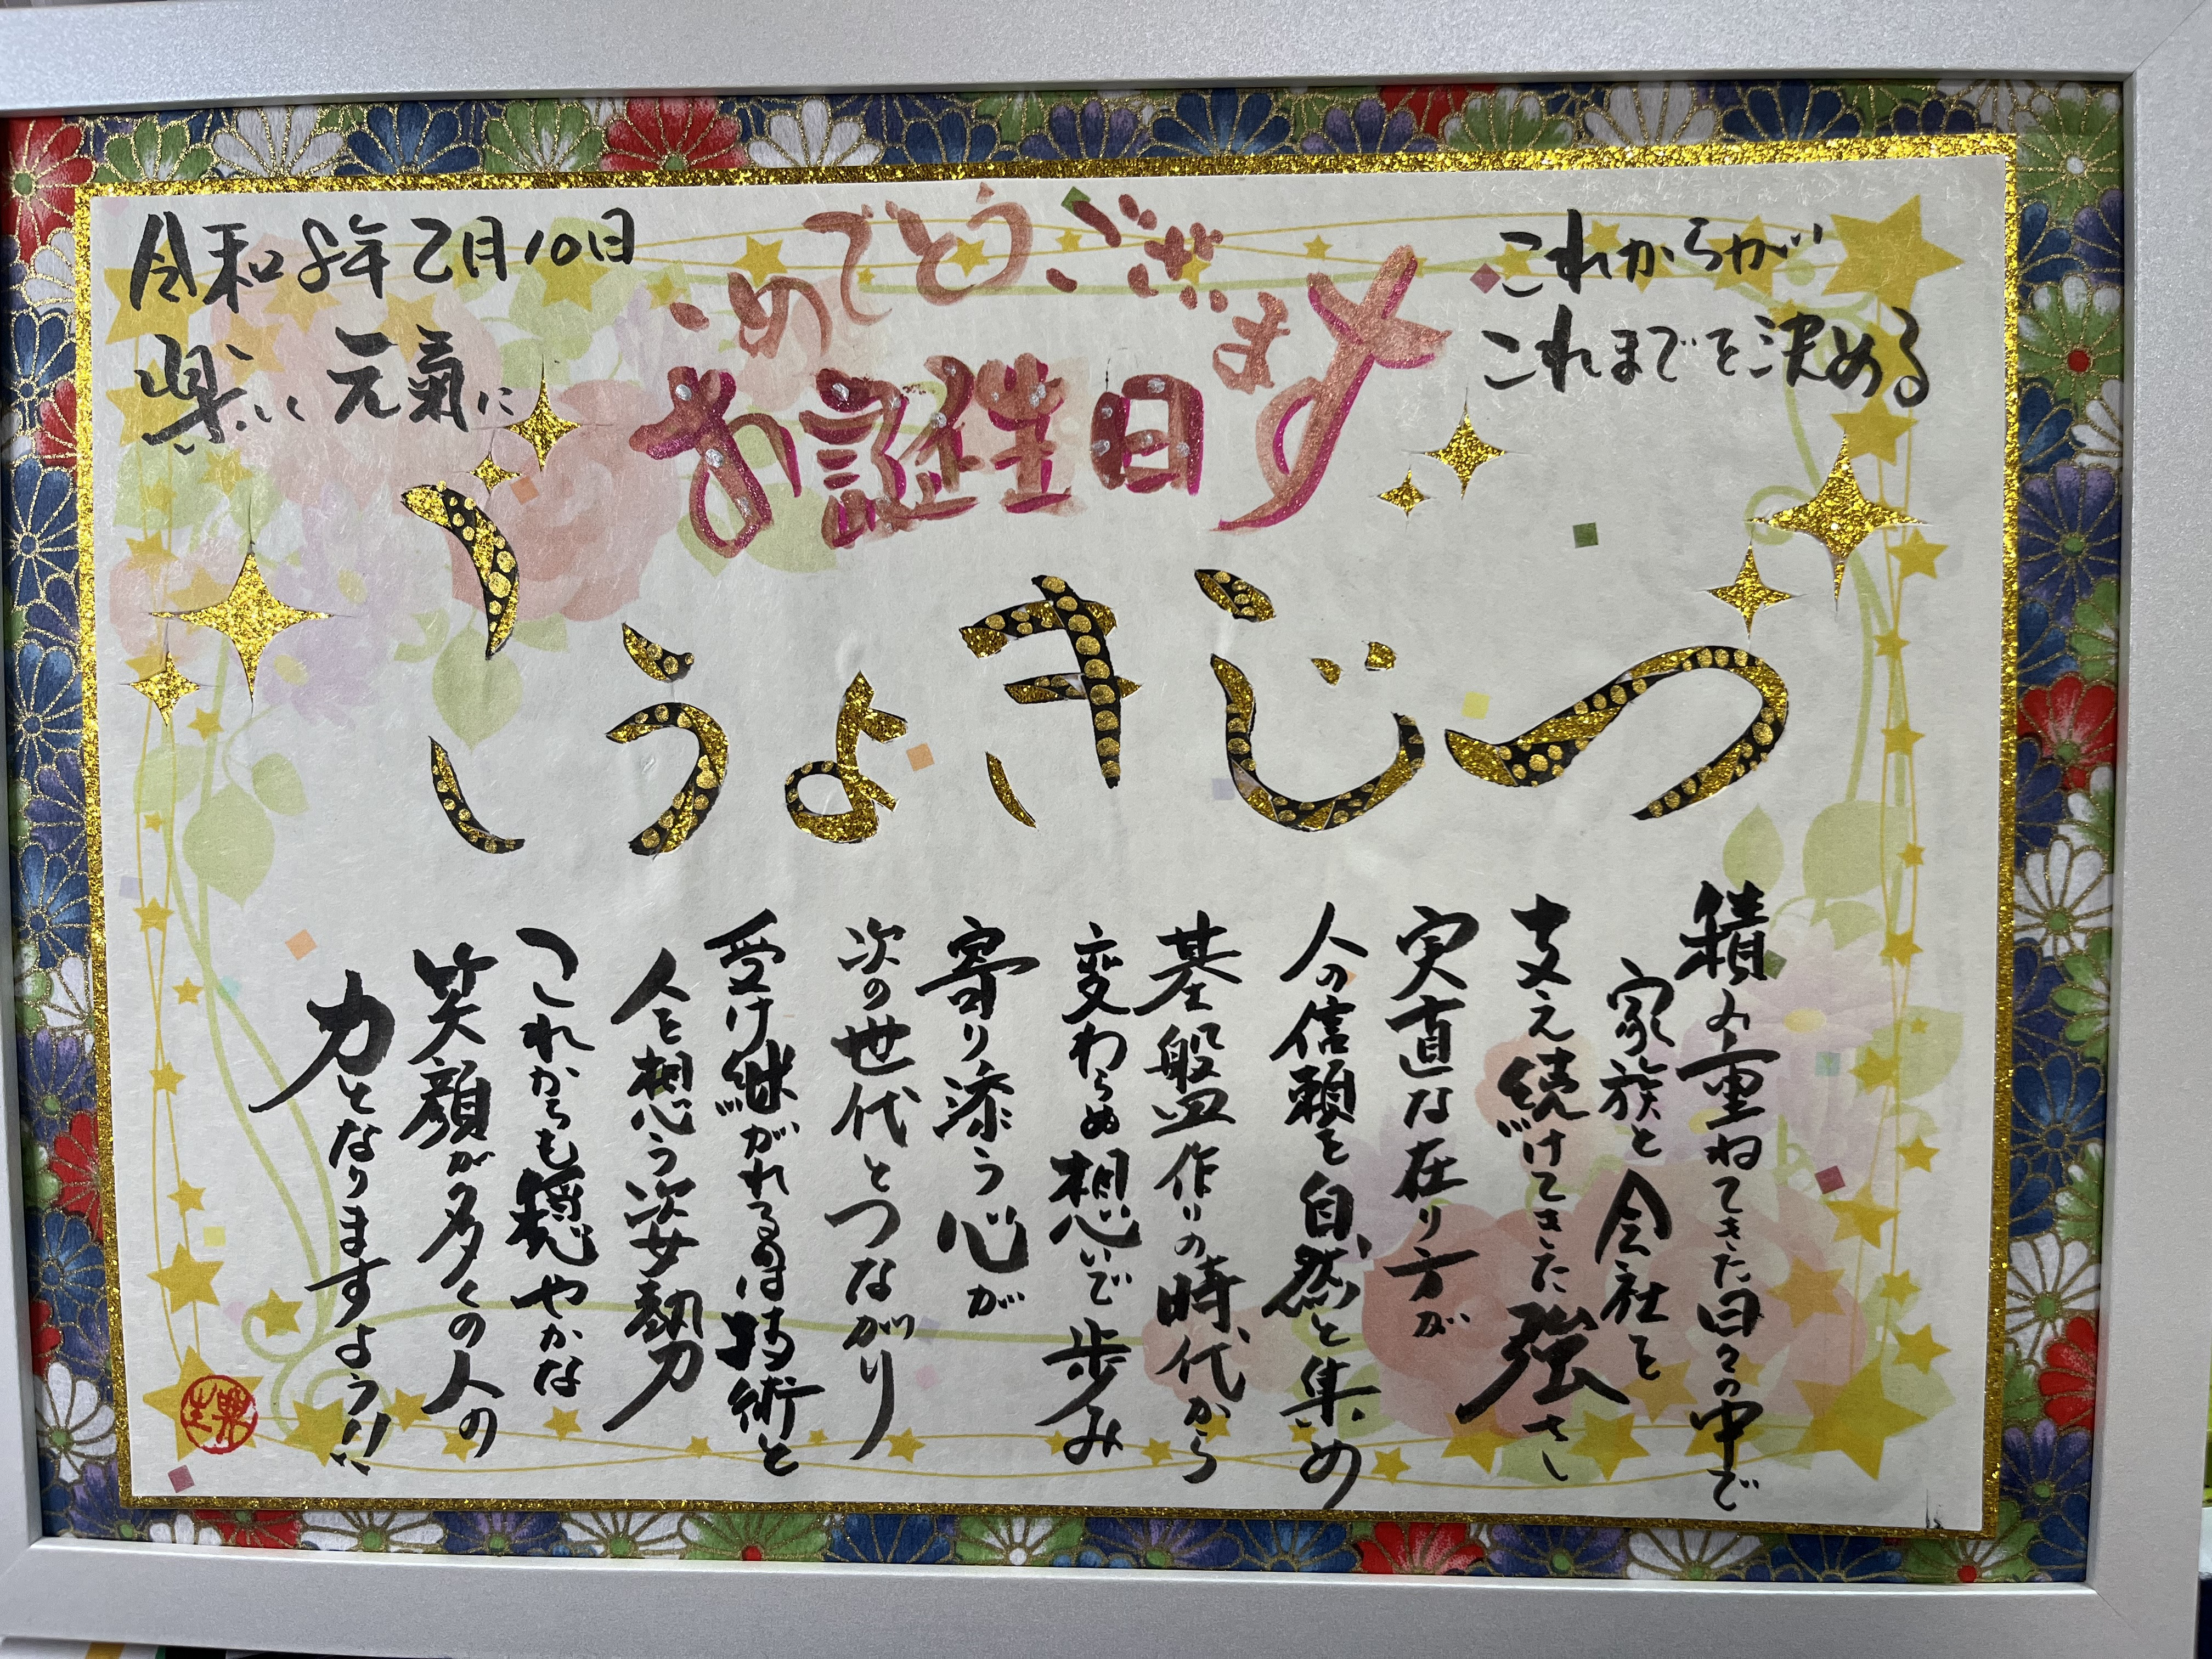 令和8年2月10日
元氣に
お誕生日
おめでとうございます
これからが
これまでを決める
つじきょうこ
積み重ねてきた日々の中で
家族と会社を
支え続けてきた強さ
実直な在り方が
人の信頼を自然と集め
基盤作りの時代から
変わらぬ想いで歩み
寄り添う心が
次の世代とつながり
受け継がれるのは技術と
人を想う姿勢
これからも穏やかな
笑顔が多くの人の
力となりますよう!!